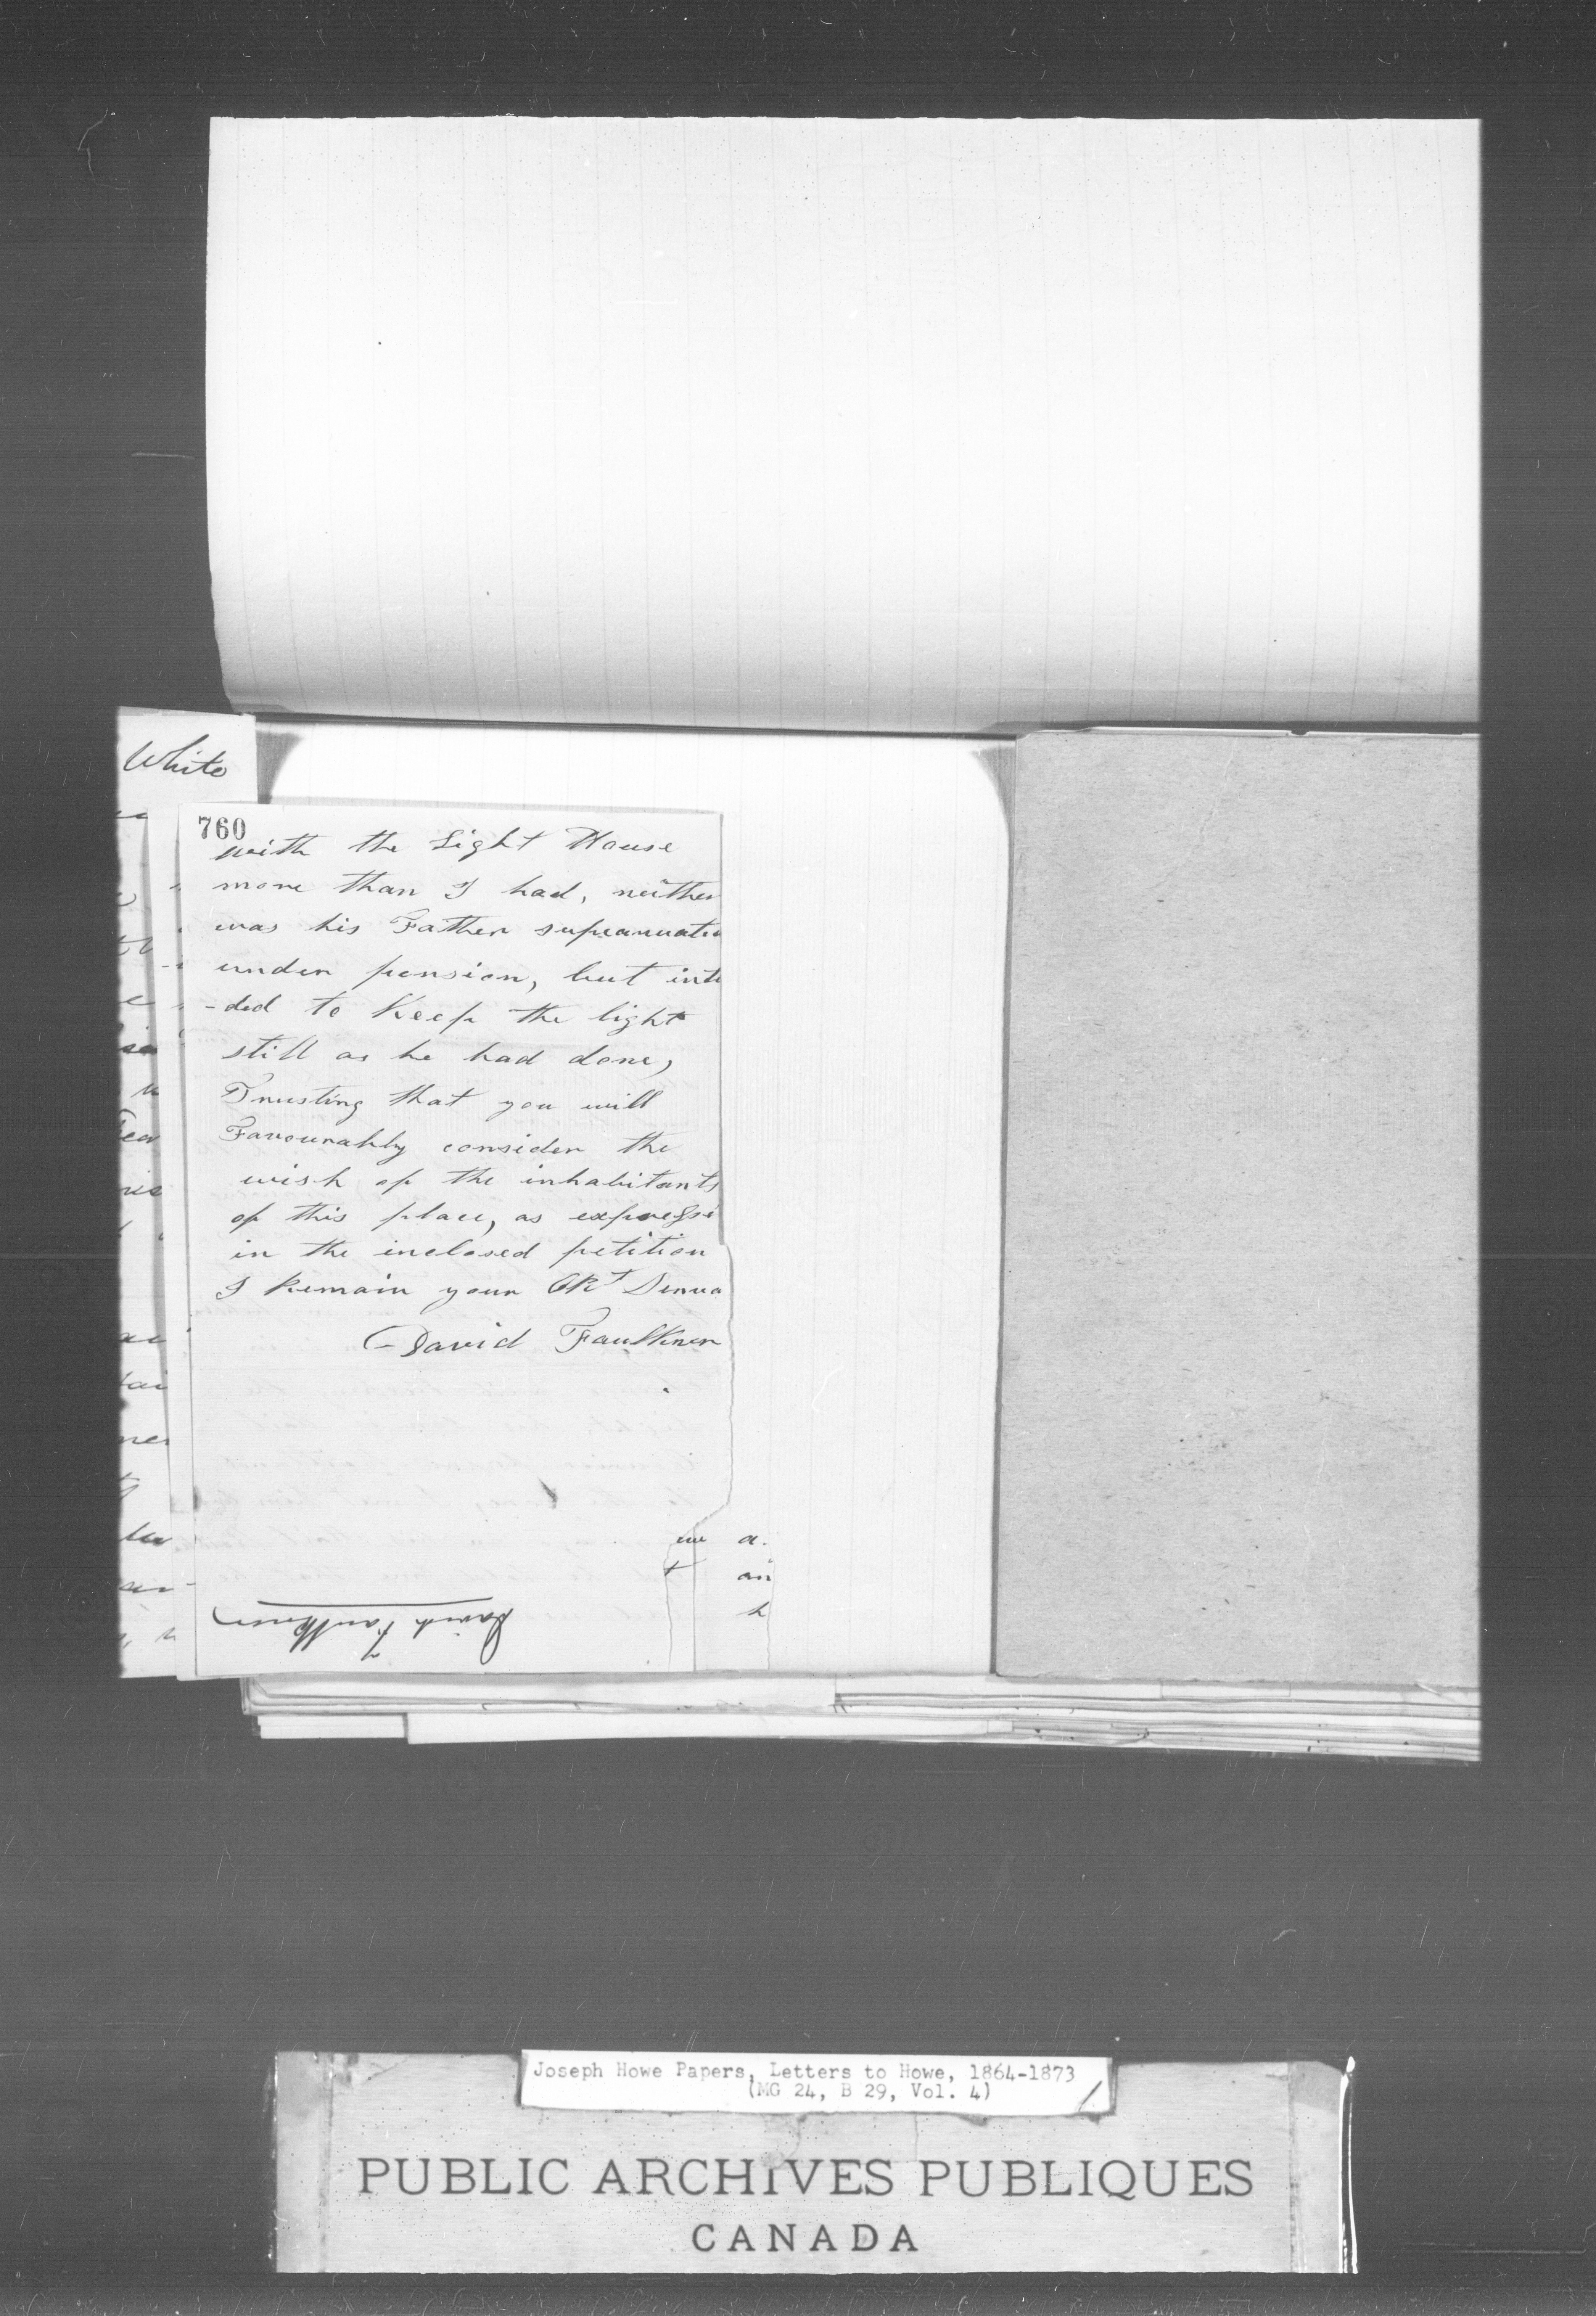 White
760
with the Light House
more than I had, neither
was his Father supeanuate
under pension, but inte
-ded to Keep the light
still as he had done,
Trusting that you will
Favourably consider the
wish of the inhabitants
of this place, as expresse
in the inclosed petition
I Remain your Obt Serva
David Faulkner
a.
t an
h
David Faulkner
Joseph Howe Papers, Letters to Howe, 1864-1873
(MG 24, B 29, Vol. 4)
PUBLIC ARCHIVES PUBLIQUES
CANADA